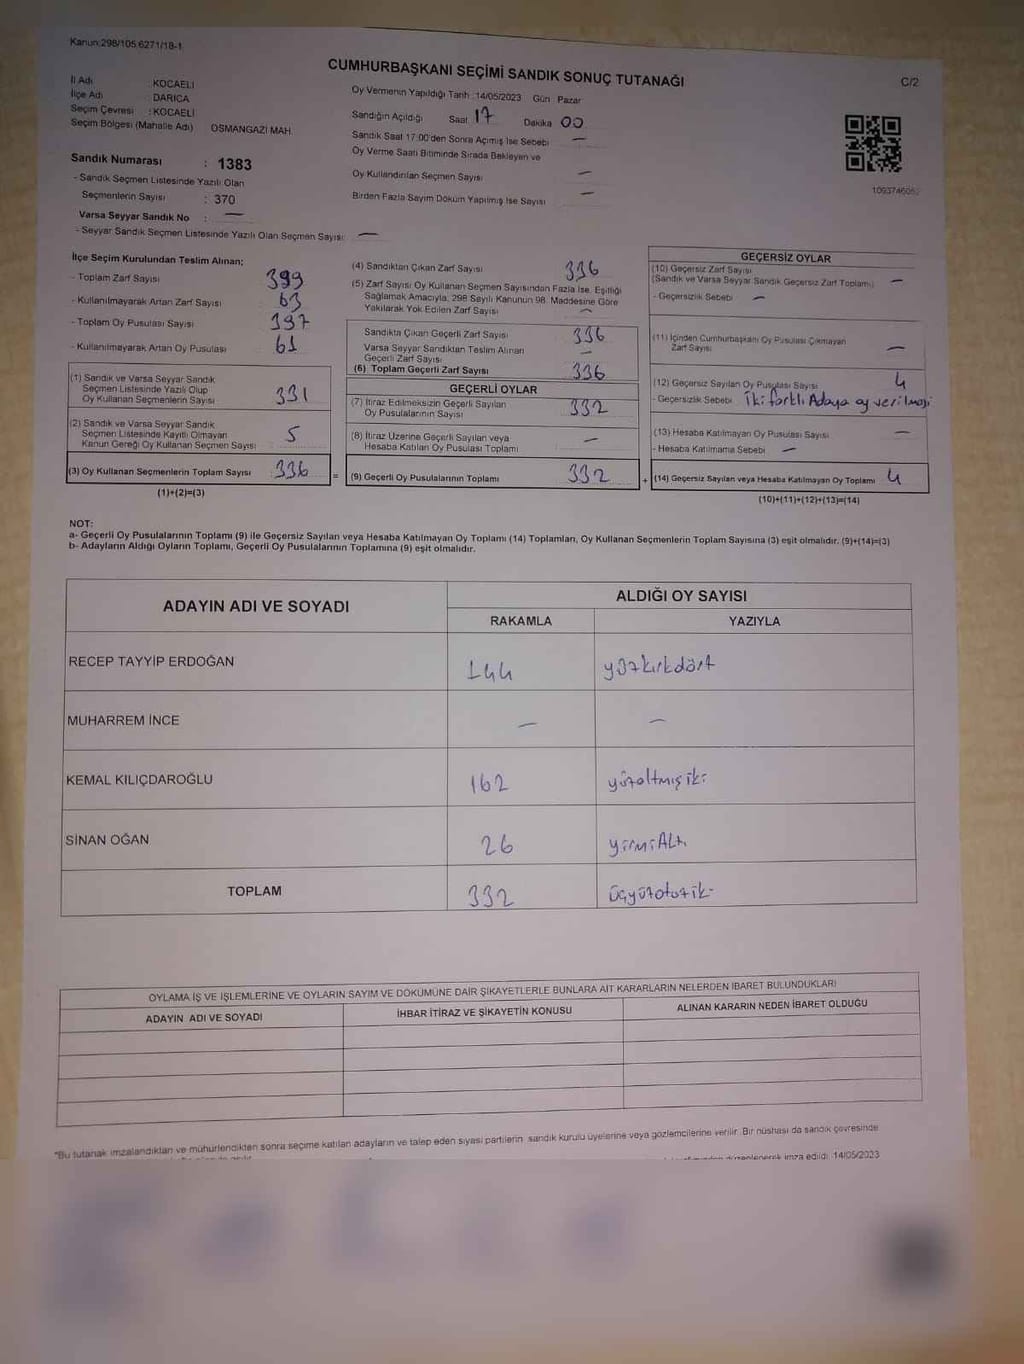 Kanun:298/105.6271/18-1
CUMHURBAŞKANI SEÇİMİ SANDIK SONUÇ TUTANAĞI
C/2
İl Adı : KOCAELİ
İlçe Adı : DARICA
Seçim Çevresi : KOCAELİ
Seçim Bölgesi (Mahalle Adı) OSMANGAZİ MAH.
Sandık Numarası : 1383
- Sandık Seçmen Listesinde Yazılı Olan
Seçmenlerin Sayısı : 370
Varsa Seyyar Sandık No : —
- Seyyar Sandık Seçmen Listesinde Yazılı Olan Seçmen Sayısı: —
Oy Vermenin Yapıldığı Tarih : 14/05/2023 Gün Pazar
Sandığın Açıldığı Saat 17 Dakika 00
Sandık Saat 17:00'den Sonra Açımış İse Sebebi —
Oy Verme Saati Bitiminde Sırada Bekleyen ve
Oy Kullandırılan Seçmen Sayısı —
Birden Fazla Sayım Döküm Yapılmış İse Sayısı —
İlçe Seçim Kurulundan Teslim Alınan;
- Toplam Zarf Sayısı 399
- Kullanılmayarak Artan Zarf Sayısı 63
- Toplam Oy Pusulası Sayısı 397
- Kullanılmayarak Artan Oy Pusulası 61
(1) Sandık ve Varsa Seyyar Sandık
Seçmen Listesinde Yazılı Olup
Oy Kullanan Seçmenlerin Sayısı 331
(2) Sandık ve Varsa Seyyar Sandık
Seçmen Listesinde Kayıtlı Olmayan
Kanun Gereği Oy Kullanan Seçmen Sayısı 5
(3) Oy Kullanan Seçmenlerin Toplam Sayısı 336
(1)+(2)=(3)
(4) Sandıktan Çıkan Zarf Sayısı 336
(5) Zarf Sayısı Oy Kullanan Seçmen Sayısından Fazla İse, Eşitliği
Sağlamak Amacıyla, 298 Sayılı Kanunun 98. Maddesine Göre
Yakılarak Yok Edilen Zarf Sayısı —
Sandıkta Çıkan Geçerli Zarf Sayısı 336
Varsa Seyyar Sandıktan Teslim Alınan
Geçerli Zarf Sayısı —
(6) Toplam Geçerli Zarf Sayısı 336
GEÇERLİ OYLAR
(7) İtiraz Edilmeksizin Geçerli Sayılan
Oy Pusulalarının Sayısı 332
(8) İtiraz Üzerine Geçerli Sayılan veya
Hesaba Katılan Oy Pusulası Toplamı —
= (9) Geçerli Oy Pusulalarının Toplamı 332
GEÇERSİZ OYLAR
(10) Geçersiz Zarf Sayısı
(Sandık ve Varsa Seyyar Sandık Geçersiz Zarf Toplamı) —
- Geçersizlik Sebebi —
(11) İçinden Cumhurbaşkanı Oy Pusulası Çıkmayan
Zarf Sayısı —
(12) Geçersiz Sayılan Oy Pusulası Sayısı 4
- Geçersizlik Sebebi İki farklı Adaya oy verilmesi
(13) Hesaba Katılmayan Oy Pusulası Sayısı —
- Hesaba Katılmama Sebebi —
+ (14) Geçersiz Sayılan veya Hesaba Katılmayan Oy Toplamı 4
(10)+(11)+(12)+(13)=(14)
NOT:
a- Geçerli Oy Pusulalarının Toplamı (9) ile Geçersiz Sayılan veya Hesaba Katılmayan Oy Toplamı (14) Toplamları, Oy Kullanan Seçmenlerin Toplam Sayısına (3) eşit olmalıdır. (9)+(14)=(3)
b- Adayların Aldığı Oyların Toplamı, Geçerli Oy Pusulalarının Toplamına (9) eşit olmalıdır.
ADAYIN ADI VE SOYADI
ALDIĞI OY SAYISI
RAKAMLA YAZIYLA
RECEP TAYYİP ERDOĞAN 144 yüzkırkdört
MUHARREM İNCE — —
KEMAL KILIÇDAROĞLU 162 yüzaltmışiki
SİNAN OĞAN 26 yirmiAltı
TOPLAM 332 üçyüzotuziki
OYLAMA İŞ VE İŞLEMLERİNE VE OYLARIN SAYIM VE DÖKÜMÜNE DAİR ŞİKAYETLERLE BUNLARA AİT KARARLARIN NELERDEN İBARET BULUNDUKLARI
ADAYIN ADI VE SOYADI İHBAR İTİRAZ VE ŞİKAYETİN KONUSU ALINAN KARARIN NEDEN İBARET OLDUĞU
*Bu tutanak imzalandıktan ve mühürlendikten sonra seçime katılan adayların ve talep eden siyasi partilerin sandık kurulu üyelerine veya gözlemcilerine verilir. Bir nüshası da sandık çevresinde
düzenlenerek imza edildi. 14/05/2023